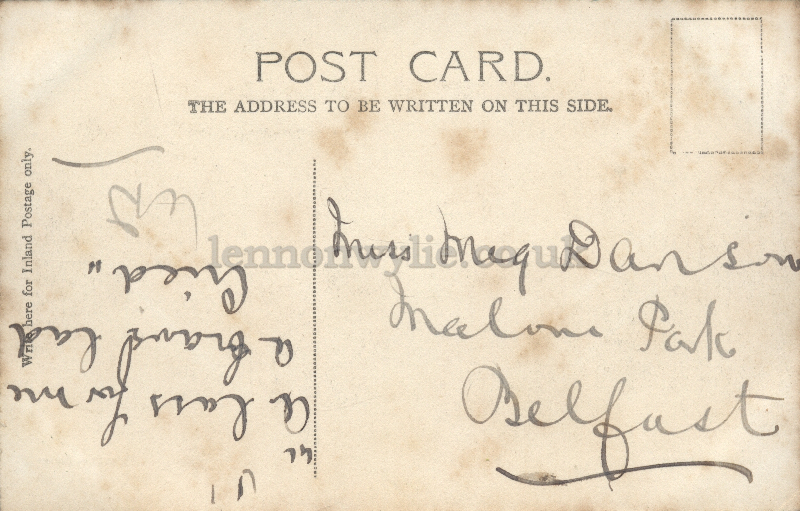 POST CARD.
THE ADDRESS TO BE WRITTEN ON THIS SIDE.
Write here for Inland Postage only.
"A lass for me
a lad
Cried"
Miss Meg Davison
Malone Park
Belfast
lennonwylie.co.uk